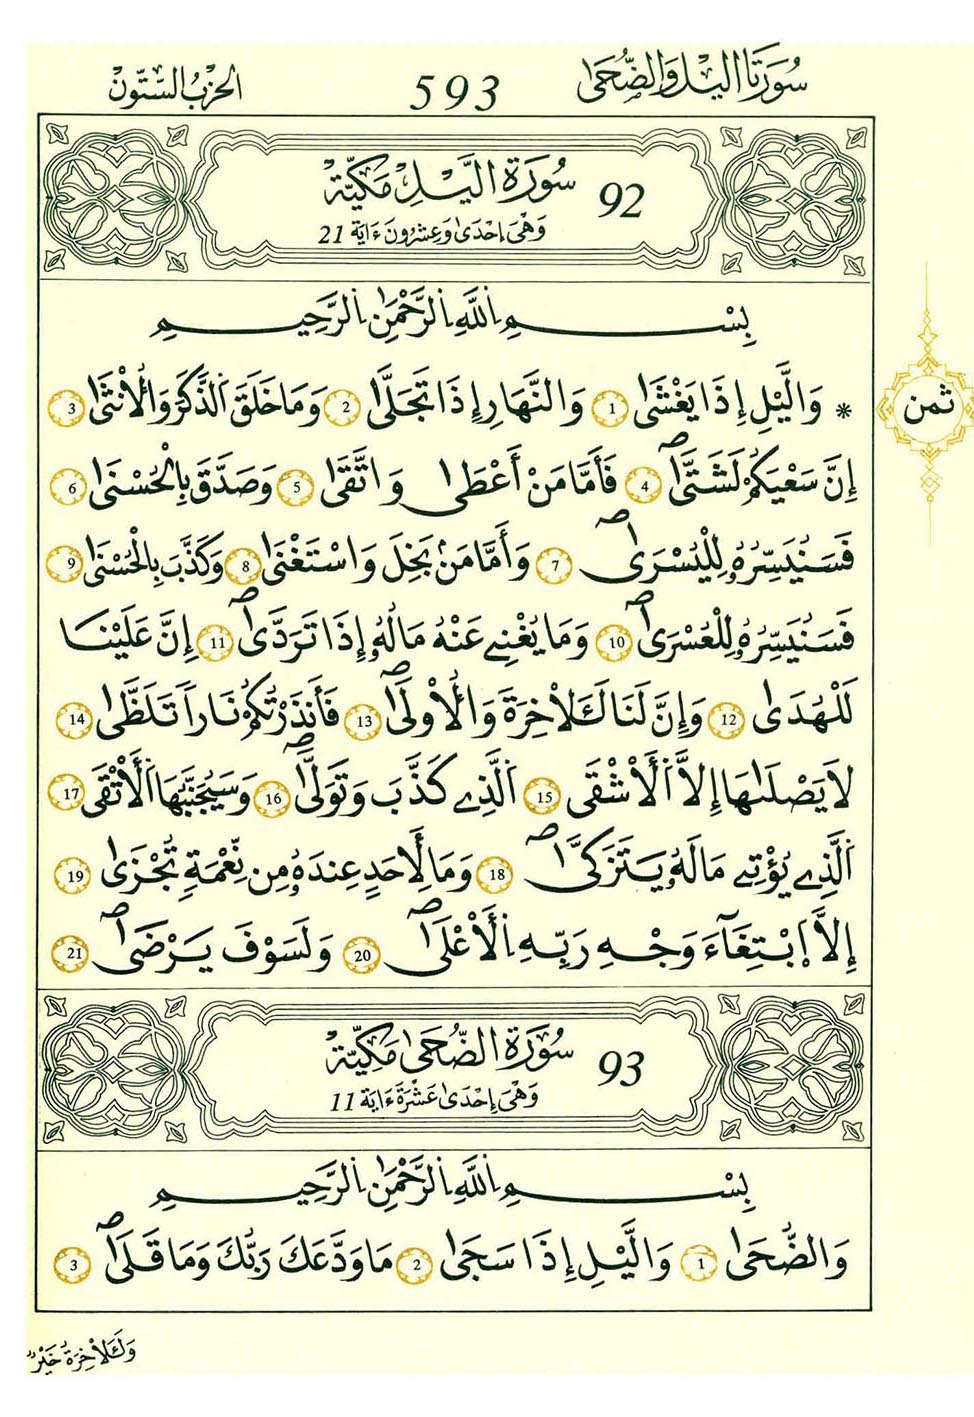 سُورَتَا اليْلِ وَالضُّحَىٰ 593 الحِزْبُ السِّتُّونَ
92 سُورَةُ الَّيْلِ مَكِّيَّة
وَهْيَ إِحْدَىٰ وَعِشْرُونَ ءَايَة 21
بِسْمِ اِللَّهِ اِلرَّحْمَٰنِ اِلرَّحِيمِ
* وَالَّيْلِ إِذَا يَغْشَىٰ 1 وَالنَّهَارِ إِذَا تَجَلَّىٰ 2 وَمَا خَلَقَ اَلذَّكَرَ وَالُانثَىٰ 3
ثمن
إِنَّ سَعْيَكُمْ لَشَتَّىٰ 4 فَأَمَّا مَنْ أَعْطَىٰ وَاتَّقَىٰ 5 وَصَدَّقَ بِالْحُسْنَىٰ 6
فَسَنُيَسِّرُهُۥ لِلْيُسْرَىٰ 7 وَأَمَّا مَنۢ بَخِلَ وَاسْتَغْنَىٰ 8 وَكَذَّبَ بِالْحُسْنَىٰ 9
فَسَنُيَسِّرُهُۥ لِلْعُسْرَىٰ 10 وَمَا يُغْنِے عَنْهُ مَالُهُۥ إِذَا تَرَدَّىٰ 11 إِنَّ عَلَيْنَا
لَلْهُدَىٰ 12 وَإِنَّ لَنَا لَلَاخِرَةَ وَالُاولَىٰ 13 فَأَنذَرْتُكُمْ نَاراً تَلَظَّىٰ 14
لَا يَصْلَىٰهَا إِلَّا اَلَاشْقَى 15 اَلَّذِے كَذَّبَ وَتَوَلَّىٰ 16 وَسَيُجَنَّبُهَا اَلَاتْقَى 17
اَلَّذِے يُؤْتِے مَالَهُۥ يَتَزَكَّىٰ 18 وَمَا لِأَحَدٍ عِندَهُۥ مِن نِّعْمَةٍ تُجْزَىٰ 19
إِلَّا اَبْتِغَآءَ وَجْهِ رَبِّهِ اِلَاعْلَىٰ 20 وَلَسَوْفَ يَرْضَىٰ 21
93 سُورَةُ الضُّحَىٰ مَكِّيَّة
وَهْيَ إِحْدَىٰ عَشْرَةَ ءَايَة 11
بِسْمِ اِللَّهِ اِلرَّحْمَٰنِ اِلرَّحِيمِ
وَالضُّحَىٰ 1 وَالَّيْلِ إِذَا سَجَىٰ 2 مَا وَدَّعَكَ رَبُّكَ وَمَا قَلَىٰ 3
وَلَلَاخِرَةُ خَيْرٌ